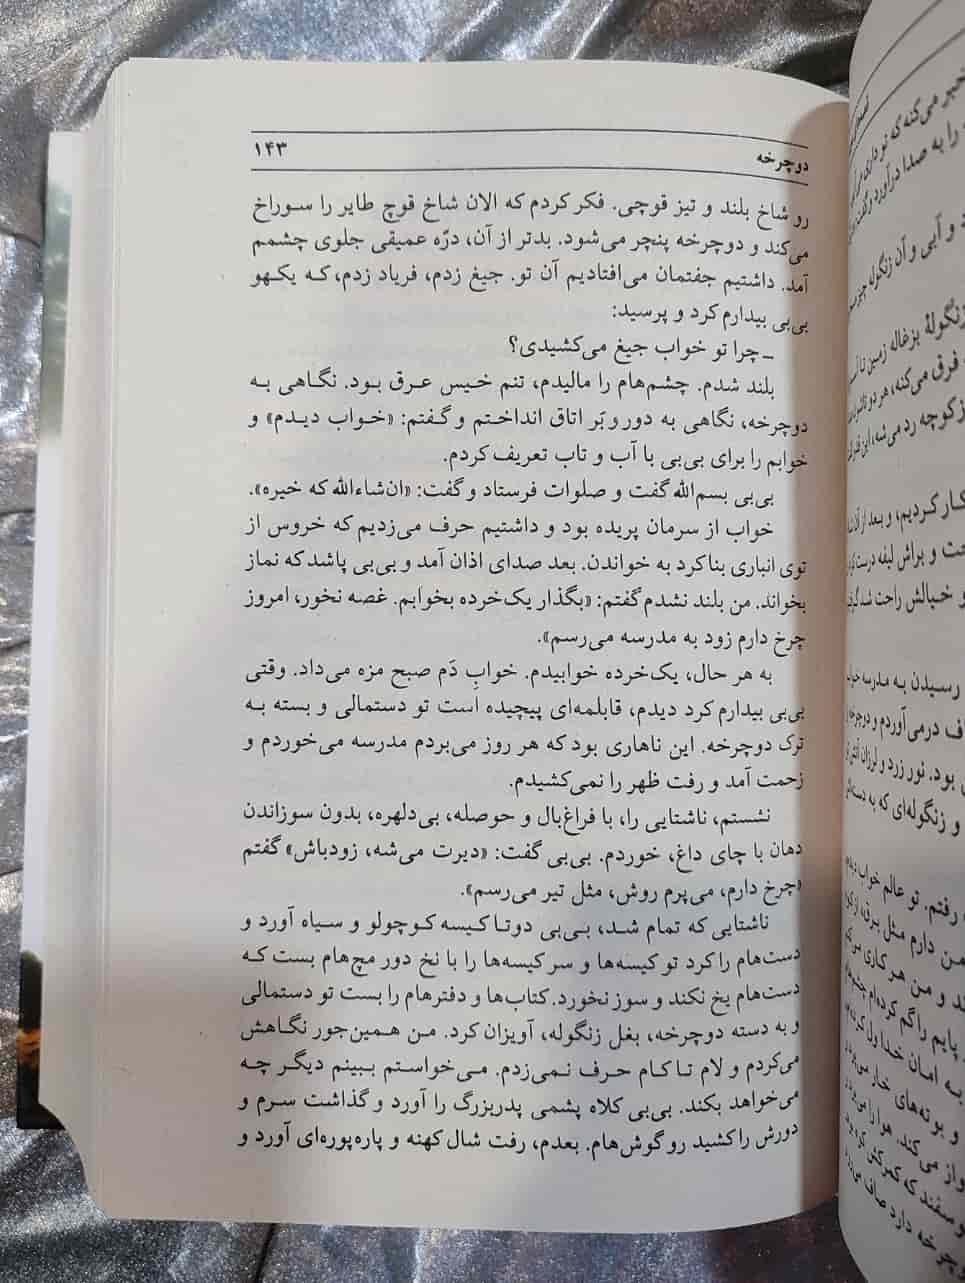 دوچرخه ۱۴۳
رو شاخ بلند و تیز قوچی. فکر کردم که الان شاخ قوچ طایر را سوراخ
می‌کند و دوچرخه پنچر می‌شود. بدتر از آن، درّه عمیقی جلوی چشمم
آمد. داشتیم جفتمان می‌افتادیم آن تو. جیغ زدم، فریاد زدم، که یکهو
بی‌بی بیدارم کرد و پرسید:
ـ چرا تو خواب جیغ می‌کشیدی؟
بلند شدم. چشم‌هام را مالیدم، تنم خیس عرق بود. نگاهی به
دوچرخه، نگاهی به دور و بَر اتاق انداختم و گفتم: «خواب دیدم» و
خوابم را برای بی‌بی با آب و تاب تعریف کردم.
بی‌بی بسم‌الله گفت و صلوات فرستاد و گفت: «ان‌شاءالله که خیره».
خواب از سرمان پریده بود و داشتیم حرف می‌زدیم که خروس از
توی انباری بنا کرد به خواندن. بعد صدای اذان آمد و بی‌بی پاشد که نماز
بخواند. من بلند نشدم گفتم: «بگذار یک‌خرده بخوابم. غصه نخور، امروز
چرخ دارم زود به مدرسه می‌رسم».
به هر حال، یک‌خرده خوابیدم. خوابِ دَم صبح مزه می‌داد. وقتی
بی‌بی بیدارم کرد دیدم، قابلمه‌ای پیچیده است تو دستمالی و بسته به
ترک دوچرخه. این ناهاری بود که هر روز می‌بردم مدرسه می‌خوردم و
زحمت آمد و رفت ظهر را نمی‌کشیدم.
نشستم، ناشتایی را، با فراغ‌بال و حوصله، بی‌دلهره، بدون سوزاندن
دهان با چای داغ، خوردم. بی‌بی گفت: «دیرت می‌شه، زودباش» گفتم
«چرخ دارم، می‌پرم روش، مثل تیر می‌رسم».
ناشتایی که تمام شد، بی‌بی دوتا کیسه کوچولو و سیاه آورد و
دست‌هام را کرد تو کیسه‌ها و سر کیسه‌ها را با نخ دور مچ‌هام بست که
دست‌هام یخ نکند و سوز نخورد. کتاب‌ها و دفترهام را بست تو دستمالی
و به دسته دوچرخه، بغل زنگوله، آویزان کرد. من همین‌جور نگاهش
می‌کردم و لام تا کام حرف نمی‌زدم. می‌خواستم ببینم دیگر چه
می‌خواهد بکند. بی‌بی کلاه پشمی پدربزرگ را آورد و گذاشت سرم و
دورش را کشید رو گوش‌هام. بعدم، رفت شال کهنه و پاره‌پوره‌ای آورد و